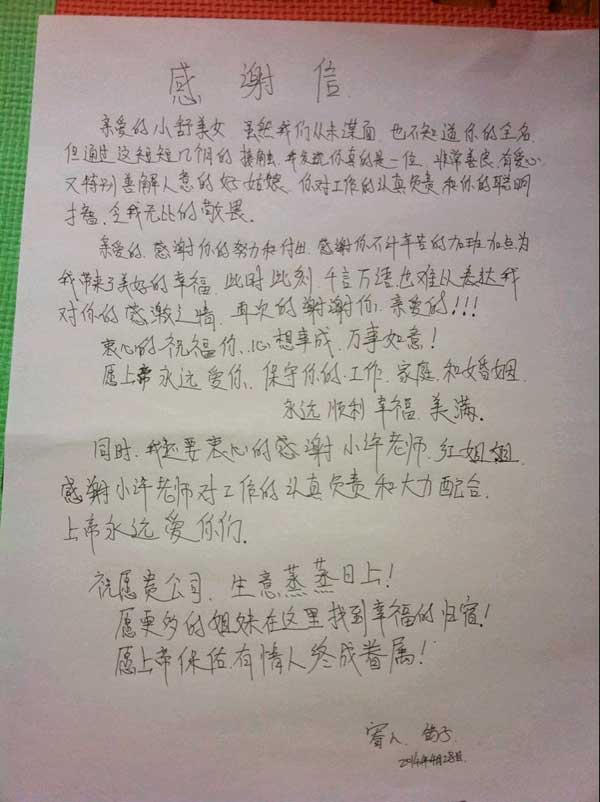 感谢信
亲爱的小舒美女 虽然我们从未谋面 也不知道你的全名
但通过这短短几个月的接触 我发现你真的是一位 非常善良 有爱心
又特别善解人意的好姑娘 你对工作的认真负责和你的聪明
才智 令我无比的敬畏。
亲爱的 感谢你的努力和付出 感谢你不计辛苦的加班加点为
我带来了美好的幸福 此时此刻 千言万语也难以表达我
对你的感激之情 再次的谢谢你 亲爱的!!!
衷心的祝福你 心想事成 万事如意!
愿上帝永远爱你 保守你的工作 家庭 和婚姻
永远顺利 幸福 美满。
同时 我还要衷心的感谢 小许老师 红姐姐
感谢小许老师对工作的认真负责和大力配合
上帝永远爱你们。
祝愿贵公司 生意蒸蒸日上!
愿更多的姐妹在这里找到幸福的归宿!
愿上帝保佑 有情人终成眷属!
2014年4月28日